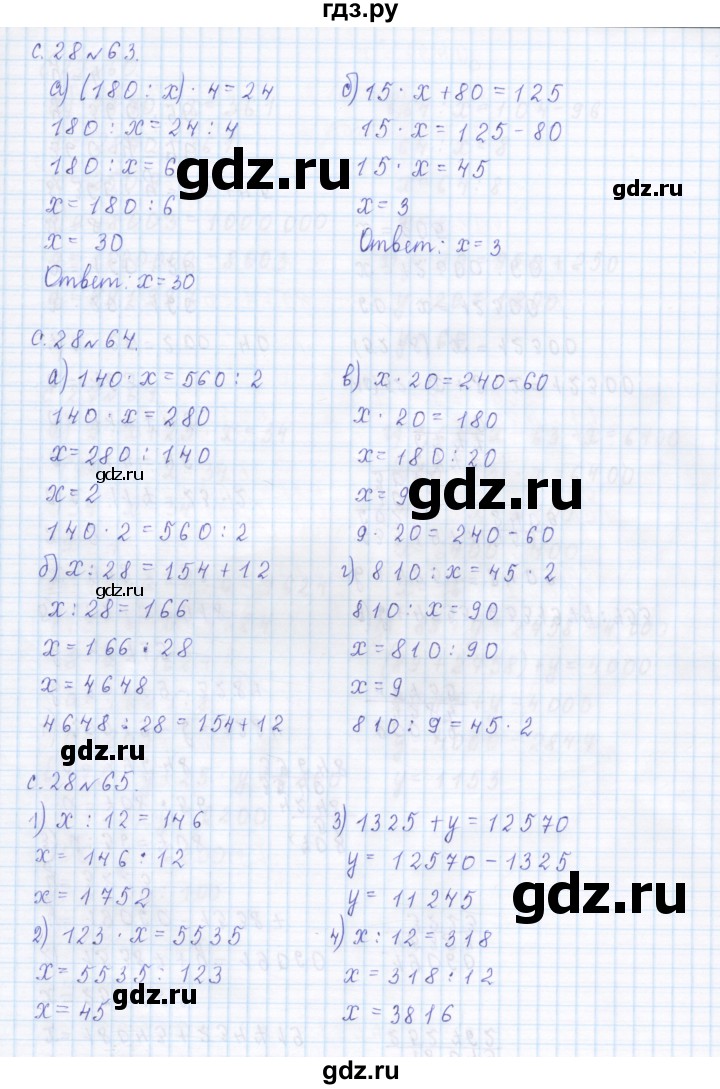 гдз.ру
с. 28 № 63.
а) (180 : x) · 4 = 24
180 : x = 24 : 4
180 : x = 6
x = 180 : 6
x = 30
Ответ: x = 30
б) 15 · x + 80 = 125
15 · x = 125 - 80
15 · x = 45
x = 3
Ответ: x = 3
gdz.ru
gdz.ru
с. 28 № 64.
а) 140 · x = 560 : 2
140 · x = 280
x = 280 : 140
gdz.ru
x = 2
140 · 2 = 560 : 2
б) x : 28 = 154 + 12
gdz.ru
x : 28 = 166
x = 166 · 28
x = 4648
4648 : 28 = 154 + 12
gdz.ru
в) x · 20 = 240 - 60
x · 20 = 180
x = 180 : 20
x = 9
gdz.ru
9 · 20 = 240 - 60
г) 810 : x = 45 · 2
810 : x = 90
x = 810 : 90
x = 9
810 : 9 = 45 · 2
с. 28 № 65.
1) x : 12 = 146
x = 146 · 12
x = 1752
2) 123 · x = 5535
x = 5535 : 123
x = 45
gdz.ru
3) 1325 + y = 12570
y = 12570 - 1325
y = 11245
gdz.ru
4) x : 12 = 318
x = 318 · 12
x = 3816
gdz.ru